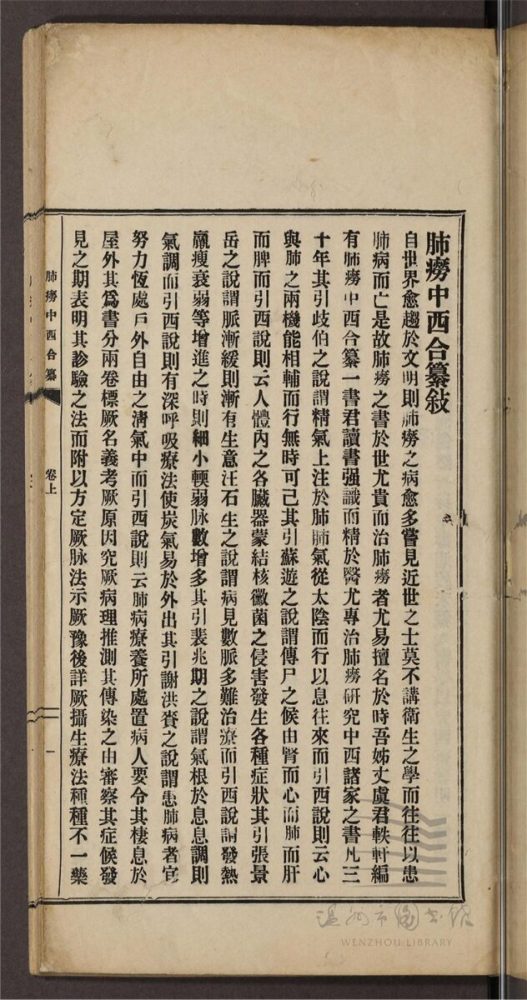 肺癆中西合纂敍
自世界愈趨於文明則肺癆之病愈多嘗見近世之士莫不講衛生之學而往往以患
肺病而亡是故肺癆之書於世尤貴而治肺癆者尤易擅名於時吾姊丈虞君軼軒編
有肺癆中西合纂一書君讀書强識而精於醫尤專治肺癆研究中西諸家之書凡三
十年其引歧伯之說謂精氣上注於肺肺氣從太陰而行以息往來而引西說則云心
與肺之兩機能相輔而行無時可已其引蘇遊之說謂傳尸之候由腎而心而肺而肝
而脾而引西說則云人體內之各臟器蒙結核黴菌之侵害發生各種症狀其引張景
岳之說謂脈漸緩則漸有生意汪石生之說謂病見數脈多難治療而引西說謂發熱
羸瘦衰弱等增進之時則細小輭弱脉數增多其引裴兆期之說謂氣根於息息調則
氣調而引西說則有深呼吸療法使炭氣易於外出其引謝洪賚之說謂患肺病者宜
努力恆處戶外自由之淸氣中而引西說則云肺病療養所處置病人要令其棲息於
屋外其爲書分兩卷標厥名義考厥原因究厥病理推測其傳染之由審察其症候發
見之期表明其診驗之法而附以方定厥脉法示厥豫後詳厥攝生療法種種不一藥
肺癆中西合纂
卷上
一
溫州市圖書館
WENZHOU LIBRARY